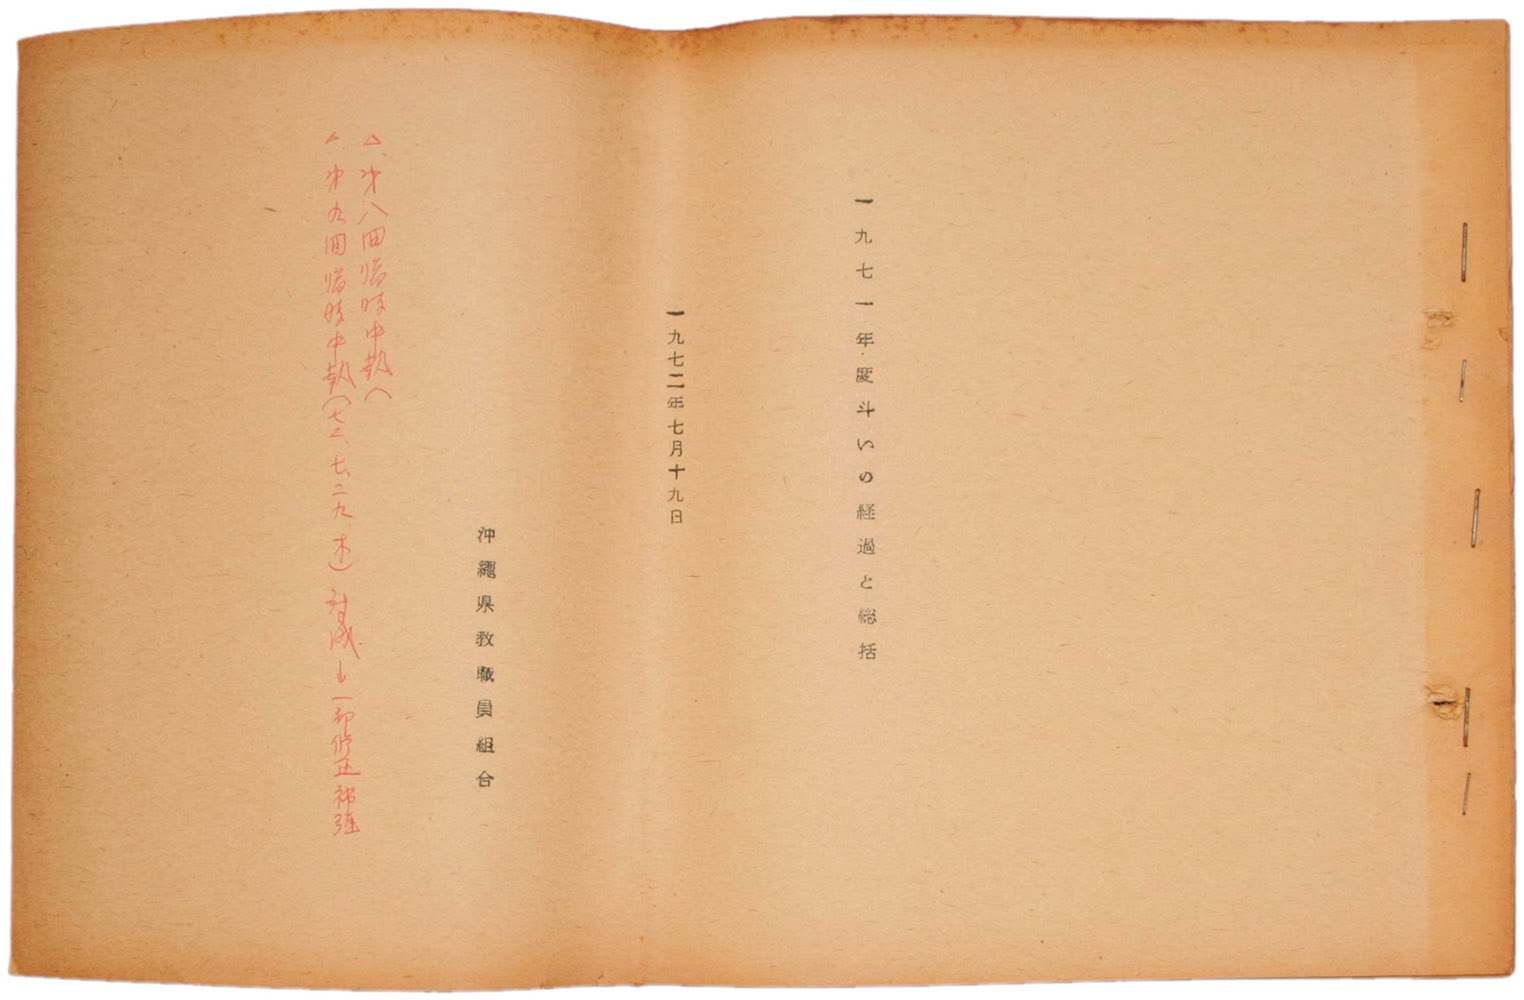 一九七一年度斗いの経過と総括
一九七二年七月十九日
沖繩県教職員組合
△、第八回臨時中執(
△ 第九回臨時中執(七二、七、二九、木)
一部修正補強